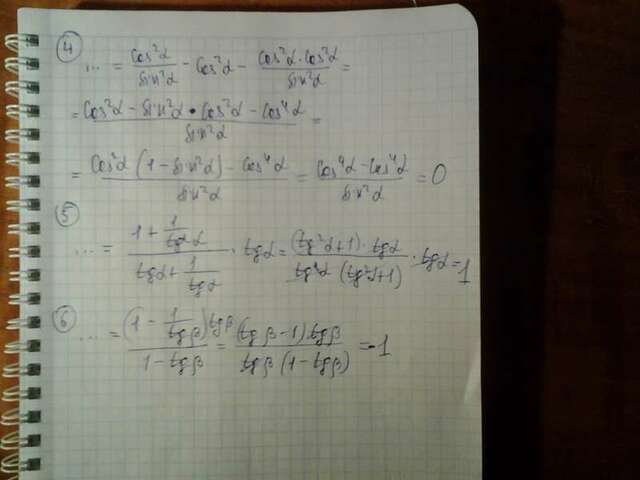 ④ ... = cos²α/sin²α - cos²α - cos²α·cos²α/sin²α =
= (cos²α - sin²α • cos²α - cos⁴α)/sin²α =
= (cos²α (1 - sin²α) - cos⁴α)/sin²α = (cos⁴α - cos⁴α)/sin²α = 0
⑤ ... = (1 + 1/tg²α)/(tgα + 1/tgα) · tgα = (tg²α+1) · tgα/(tg²α (tg²α+1)) · tgα = 1
⑥ ... = (1 - 1/tgβ)tgβ/(1 - tgβ) = (tgβ - 1) tgβ/(tgβ (1 - tgβ)) = -1